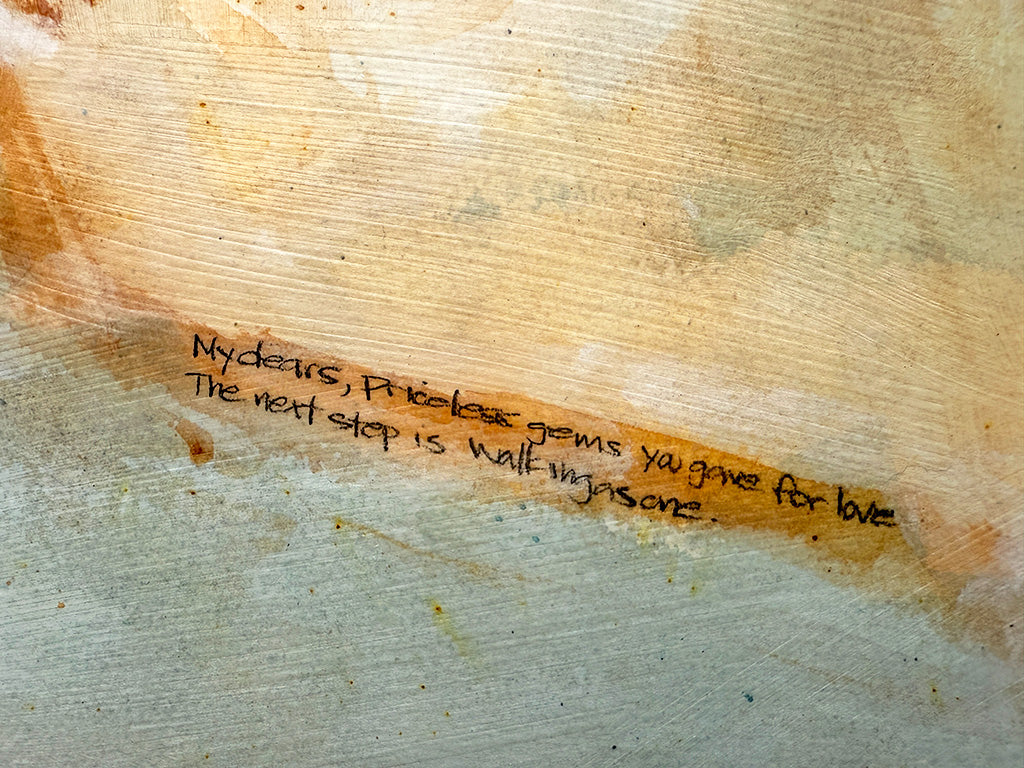 My dears, Priceless gems you gave for love
The next step is walking as one.